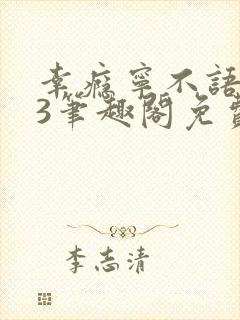 幸瘾寧不語
3筆趣閣免費
李志清